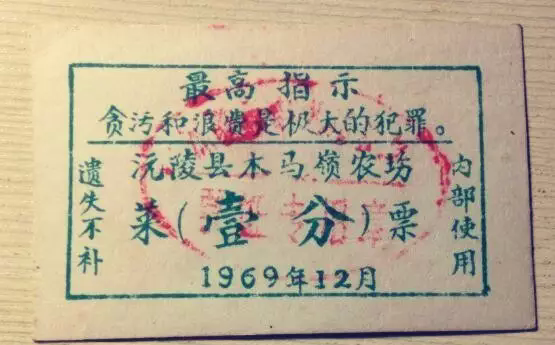 最高指示
贪污和浪费是极大的犯罪。
沅陵县木马岭农场
菜(壹分)票
1969年12月
遗失不补
内部使用